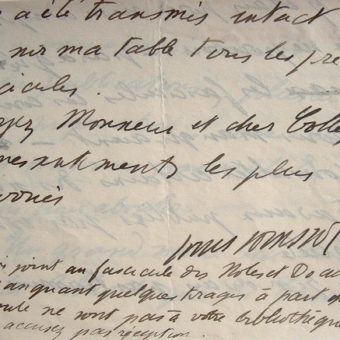 a été transmis intact
sur ma table tous les pre
cicules.
yez Monsieur et cher Colle
mes sentiments les plus
voués
joint au fascicule des Notes et Docu
manquant quelques tirages à part
ne sont pas à votre bibliothèque
accusez pas réception.